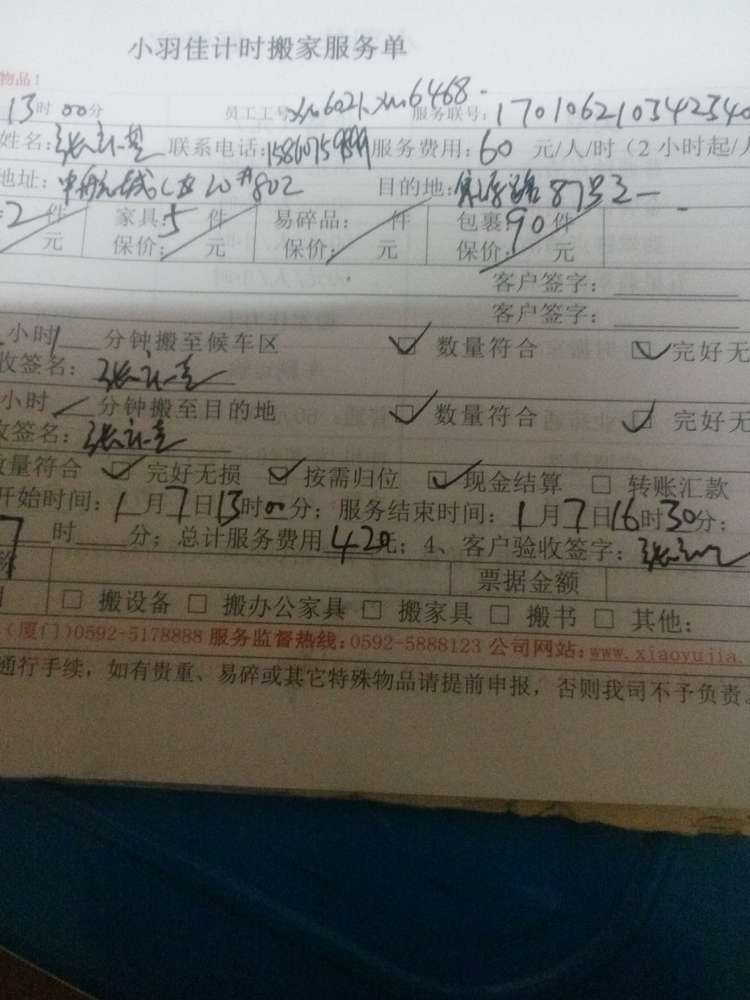 小羽佳计时搬家服务单
物品！
13时00分 员工工号:xm6021.xm6468. 服务联号:170106210342340
姓名: 联系电话: 服务费用:60 元/人/时（2小时起/人
地址: 802 目的地: 87号之一
2件 家具:5件 易碎品: 件 包裹:90件
元 保价: 元 保价: 元 保价: 元
客户签字:
客户签字:
小时 分钟搬至候车区 ☑ 数量符合 ☑ 完好无
收签名:
小时 分钟搬至目的地 ☑ 数量符合 ☑ 完好无
收签名:
数量符合 ☑ 完好无损 ☑ 按需归位 ☑ 现金结算 ☐ 转账汇款
开始时间:1月7日13时00分; 服务结束时间:1月7日16时30分;
7时 分; 总计服务费用420元; 4、客户验收签字:
称 票据金额
☐ 搬设备 ☐ 搬办公家具 ☐ 搬家具 ☐ 搬书 ☐ 其他:
（厦门)0592-5178888 服务监督热线:0592-5888123 公司网站:www.xiaoyujia.
通行手续，如有贵重、易碎或其它特殊物品请提前申报，否则我司不予负责。